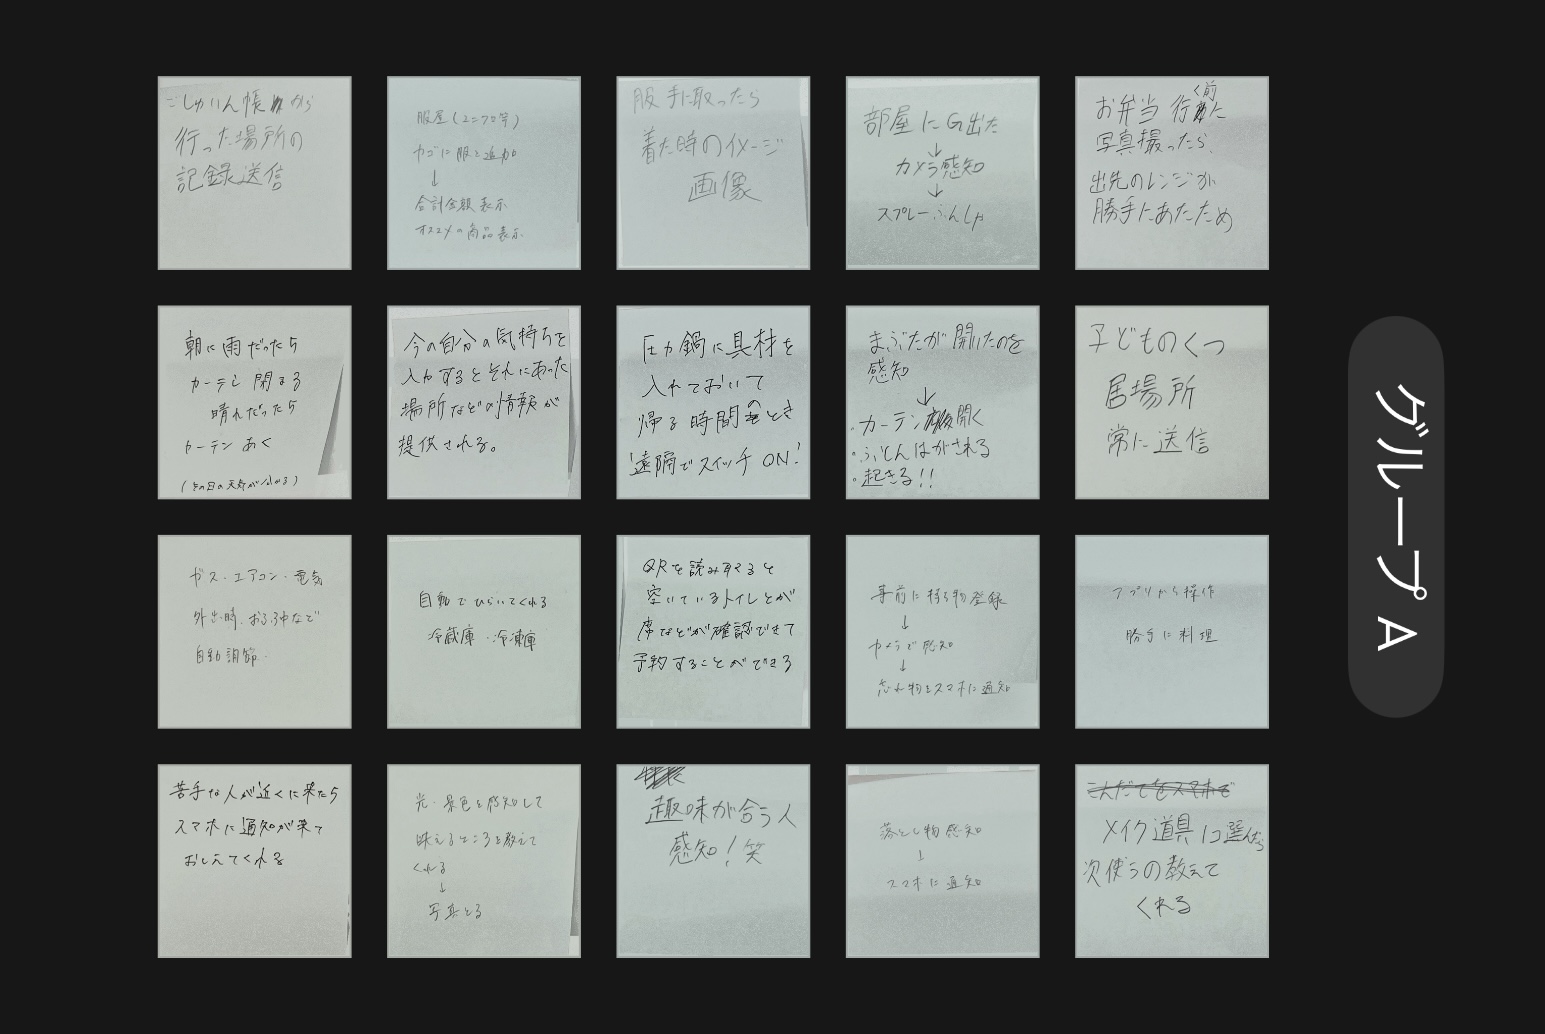 ごしゅいん帳から
行った場所の
記録送信
服屋(ユニクロ等)
カゴに服を追加
↓
合計金額表示
オススメの商品表示
服手に取ったら
着た時のイメージ
画像
部屋にG出た
↓
カメラ感知
↓
スプレーふんしゃ
お弁当行く前に
写真撮ったら、
出先のレンジが
勝手にあたため
朝に雨だったら
カーテン閉まる
晴れだったら
カーテンあく
(その日の天気が分かる)
今の自分の気持ちを
入力するとそれにあった
場所などの情報が
提供される。
圧力鍋に具材を
入れておいて
帰る時間のとき
遠隔でスイッチON!
まぶたが開いたのを
感知
↓
・カーテン開く
・ふとんはがされる
・起きる!!
子どものくつ
居場所
常に送信
ガス・エアコン・電気
外出時、おふろ中など
自動調節
自動でひらいてくれる
冷蔵庫・冷凍庫
QRを読み取ると
空いているトイレとか
席などが確認できて
予約することができる
事前に持ち物登録
↓
カメラで感知
↓
忘れ物をスマホに通知
アプリから操作
勝手に料理
苦手な人が近くに来たら
スマホに通知が来て
おしえてくれる
光・景色を感知して
映えるところを教えて
くれる
↓
写真とる
趣味が合う人
感知!笑
落とし物感知
↓
スマホに通知
こんだてをスマホで
メイク道具1コ選んだら
次使うの教えて
くれる
グループ A